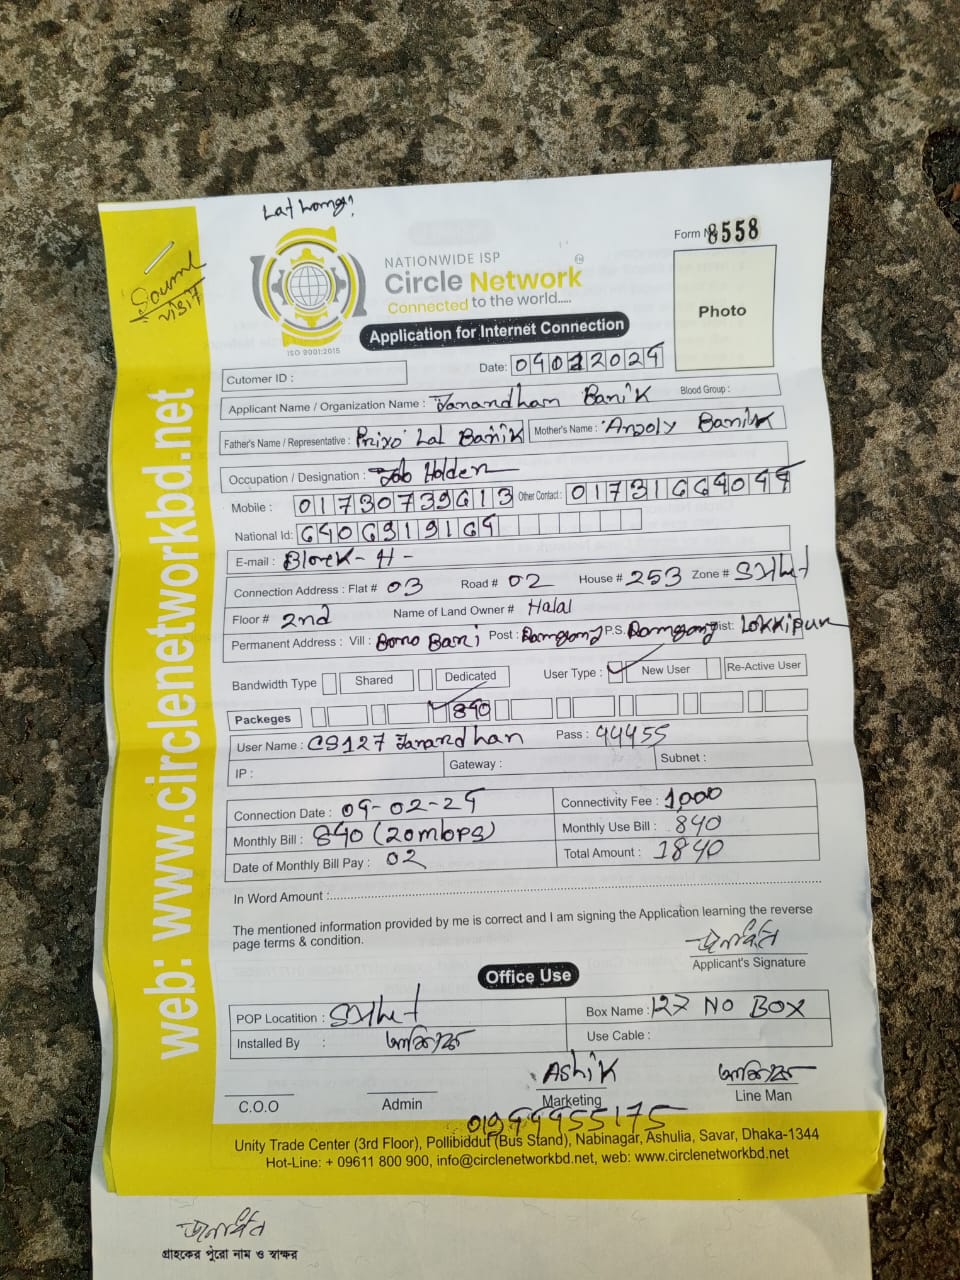 Form No 8558
NATIONWIDE ISP
Circle Network
Connected to the world.....
ISO 9001:2015
Application for Internet Connection
Photo
Cutomer ID :
Date: 04022024
Applicant Name / Organization Name : Janardhan Banik Blood Group :
Father's Name / Representative : Priyo Lal Banik Mother's Name : Anjoly Banik
Occupation / Designation : Job Holder
Mobile : 01730739613 Other Contact : 01731664044
National Id: 6406919164
E-mail : Block - H -
Connection Address : Flat # 03 Road # 02 House # 253 Zone # Sylhet
Floor # 2nd Name of Land Owner # Halal
Permanent Address : Vill : Bono Bari Post : Ramgong P.S. Ramgong Dist: Lokkipur
Bandwidth Type Shared Dedicated User Type : New User Re-Active User
Packeges 840
User Name : CS127 Pass : 44455
IP : Gateway : Subnet :
Connection Date : 04-02-24 Connectivity Fee : 1,000
Monthly Bill : 840 (20mbps) Monthly Use Bill : 840
Date of Monthly Bill Pay : 02 Total Amount : 1840
In Word Amount :
The mentioned information provided by me is correct and I am signing the Application learning the reverse
page terms & condition.
Applicant's Signature
Office Use
POP Locatition : Sylhet Box Name : 127 NO BOX
Installed By : Use Cable :
Ashik
C.O.O Admin Marketing Line Man
Unity Trade Center (3rd Floor), Pollibiddut (Bus Stand), Nabinagar, Ashulia, Savar, Dhaka-1344
Hot-Line: + 09611 800 900, info@circlenetworkbd.net, web: www.circlenetworkbd.net
web: www.circlenetworkbd.net
গ্রাহকের পুরো নাম ও স্বাক্ষর